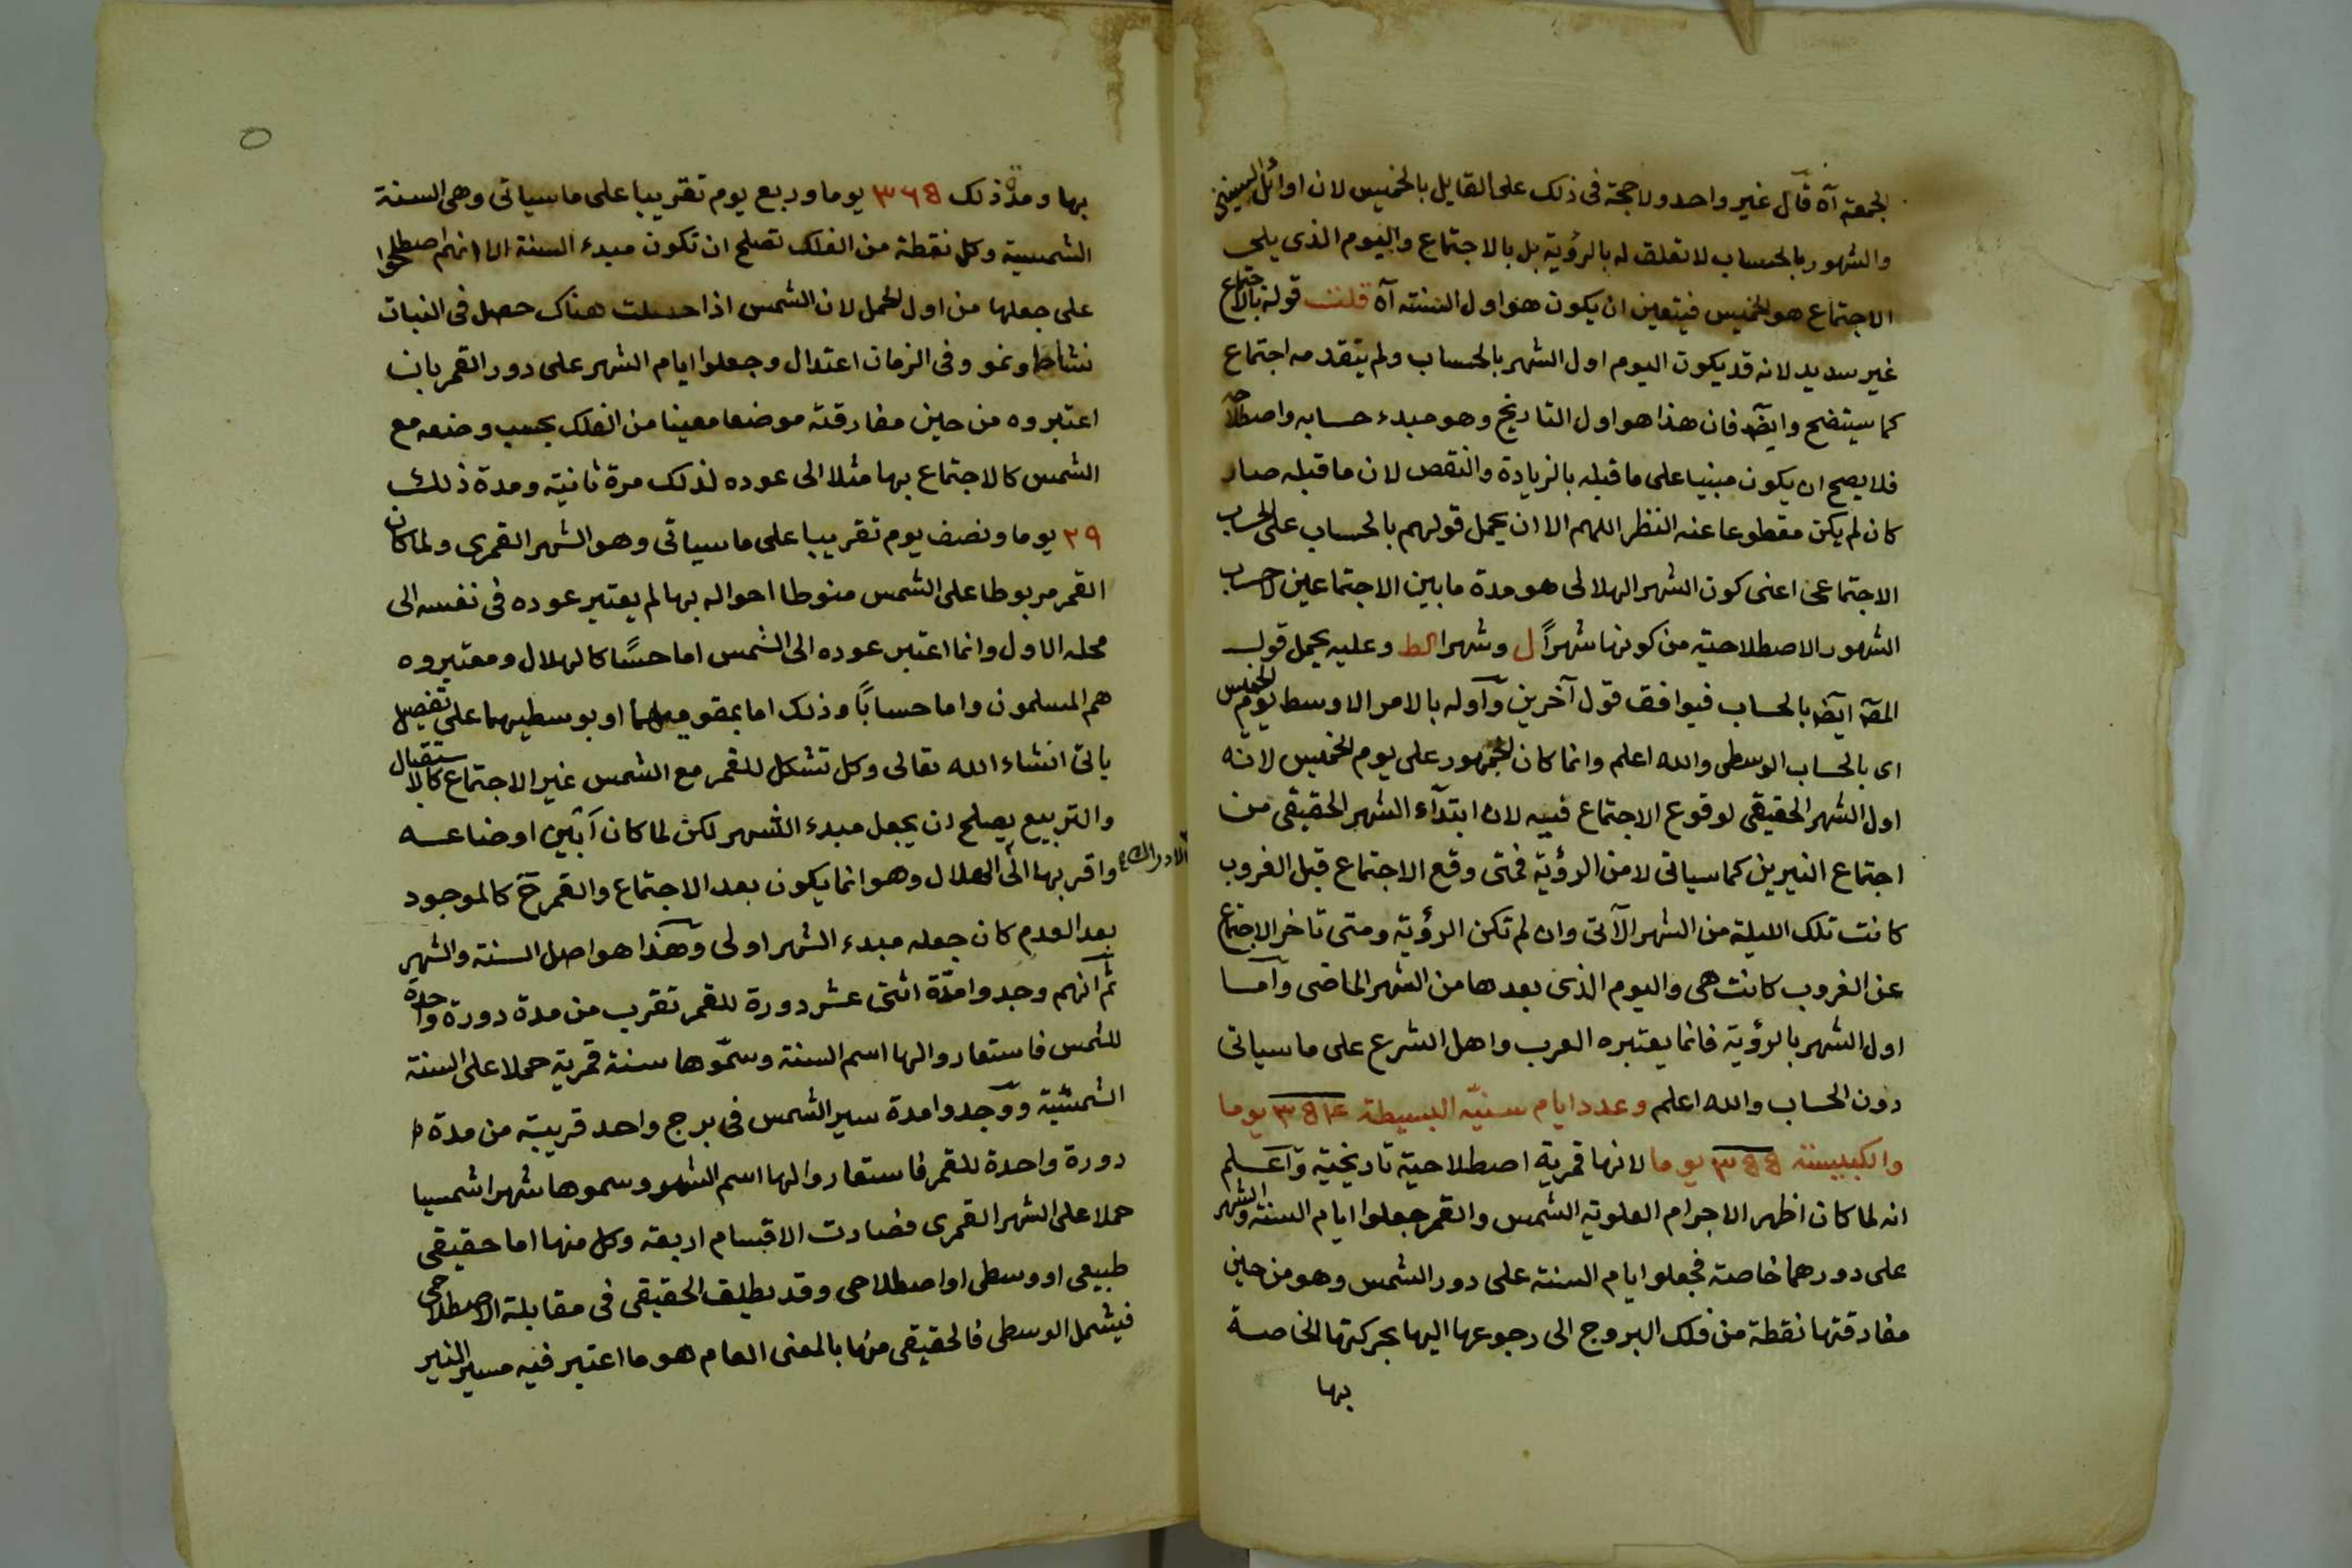 الجمعة آه قال غير واحد ولا حجة فى ذلك على القايل بالخميس لان اوائل السنين
والشهور بالحساب لا تعلق له بالرؤية بل بالاجتماع واليوم الذى يلى
الاجتماع هو الخميس فيتعين ان يكون هو اول السنة آه قلت قوله بالاجتماع
غير سديد لانه قد يكون اليوم اول الشهر بالحساب ولم يتقدمه اجتماع
كما سيتضح وايضا فان هذا هو اول التاريخ وهو مبدء حسابه واصطلاحه
فلا يصح ان يكون مبنيا على ما قبله بالزيادة والنقص لان ما قبله صار
كان لم يكن مقطوعا عنه النظر اللهم الا ان يحمل قولهم بالحساب على الحساب
الاجتماعى اعنى كون الشهر الهلالى هو مدة ما بين الاجتماعين لا حساب
الشهور الاصطلاحية من كونها شهراً ل وشهرا كط وعليه يحمل قول
المص ايض بالحساب فيوافق قول آخرين وآوله بالامر الاوسط يوم الخميس
اى بالحساب الوسطى والله اعلم وانما كان الجمهور على يوم الخميس لانه
اول الشهر الحقيقى لوقوع الاجتماع فيه لان ابتدآء الشهر الحقيقى من
اجتماع النيرين كما سياتى لا من الرؤية فمتى وقع الاجتماع قبل الغروب
كانت تلك الليلة من الشهر الآتى وان لم تكن الرؤية ومتى تاخر الاجتماع
عن الغروب كانت هى واليوم الذى بعدها من الشهر الماضى وآما
اول الشهر بالرؤية فانما يعتبره العرب واهل الشرع على ما سياتى
دون الحساب والله اعلم وعدد ايام سنيّه البسيطة ٣٥٤ يوما
والكبيسة ٣٥٥ يوما لانها قمرية اصطلاحية تاريخية وآعلم
انه لما كان اظهر الاجرام العلوية الشمس والقمر جعلوا ايام السنة والشهر
على دورهما خاصة فجعلوا ايام السنة على دور الشمس وهو من حين
مفارقتها نقطة من فلك البروج الى رجوعها اليها بحركتها الخاصة
بها
٥
بها ومدة ذلك ٣٦٥ يوما وربع يوم تقريبا على ما سياتى وهى السنة
الشمسية وكل نقطة من الفلك تصلح ان تكون مبدء السنة الا انهم اصطلحوا
على جعلها من اول الحمل لان الشمس اذا حصلت هناك حصل فى النبات
نشاط ونمو وفى الزمان اعتدال وجعلوا ايام الشهر على دور القمر بان
اعتبروه من حين مفارقته موضعا معينا من الفلك بحسب وضعه مع
الشمس كالاجتماع بها مثلا الى عوده لذلك مرة ثانية ومدة ذلك
٢٩ يوما ونصف يوم تقريبا على ما سياتى وهو الشهر القمرى ولما كان
القمر مربوطا على الشمس منوطا احواله بها لم يعتبر عوده فى نفسه الى
محله الاول وانما اعتبر عوده الى الشمس اما حسًا كالهلال ومعتبروه
هم المسلمون واما حساباً وذلك اما بمقوميهما او بوسطيهما على تفصيل
ياتى انشاء الله تعالى وكل تشكل للقمر مع الشمس غير الاجتماع كالاستقبال
والتربيع يصلح ان يجعل مبدء الشهر لكن لما كان آبين اوضاعه
واقربها الى الادراك الهلال وهو انما يكون بعد الاجتماع والقمر ح كالموجود
بعد العدم كان جعله مبدء الشهر اولى وهذا هو اصل السنة والشهر
ثم آنهم وجدوا مدّة اثنى عشر دورة للقمر تقرب من مدة دورة واحدة
للشمس فاستعاروا لها اسم السنة وسمّوها سنة قمرية حملا على السنة
الشمسية ووجدوا مدة سير الشمس فى برج واحد قريبة من مدة
دورة واحدة للقمر فاستعاروا لها اسم الشهر وسموها شهرا شمسيا
حملا على الشهر القمرى فصارت الاقسام اربعة وكل منها اما حقيقى
طبيعى او وسطى او اصطلاحى وقد يطلق الحقيقى فى مقابلة الاصطلاحى
فيشمل الوسطى فالحقيقى منها بالمعنى العام هو ما اعتبر فيه مسير النير